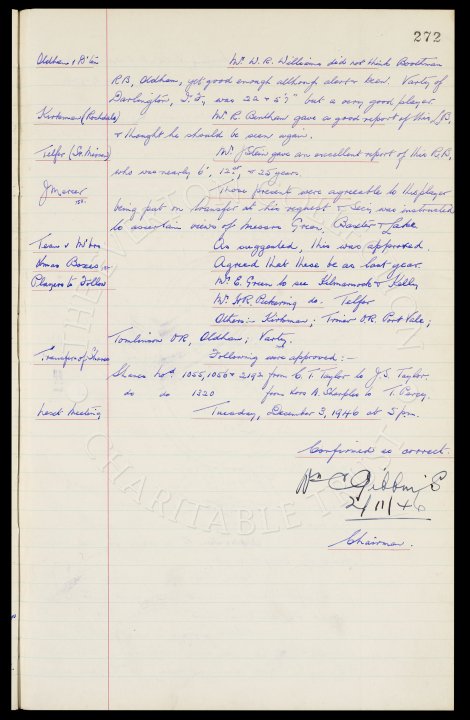 272
Oldham v B'ton Mr W.R. Williams did not think Bootman
R.B, Oldham, yet good enough although alert & keen. Varty of
Darlington, I.F, was 22 & 5'7" but a very good player.
Kirkman (Rochdale) Mr R. Benthan gave a good report of this L/B,
& thought he should be seen again.
Telfer (St. Mirren) Mr J Stein gave an excellent report of this R.B,
who was nearly 6', 12st, & 25 years.
J Mercer Those present were agreeable to the player
being put on transfer at his request & Secy was instructed
to ascertain views of Messrs Green, Baxter & Lake.
Team v M'bro As suggested, this was approved.
Xmas Boxes Agreed that these be as last year.
Players to Follow Mr E. Green to see Kilmarnock & Kelly
Mr W.R. Pickering do. Telfer
Others:- Kirkman; Triner O.R. Port Vale;
Tomlinson O.R, Oldham; Varty.
Transfer of Shares Following were approved:-
Shares Nos. 1055, 1056 & 2192 from C.T. Taylor to J.S. Taylor.
do do 1320 from Exors A. Sharples to T. Percy.
Next Meeting Tuesday, December 3, 1946 at 5 pm.
Confirmed as correct.
Wm C Gibbins
Chairman.
THE EVERTON COLLECTION
CHARITABLE TRUST